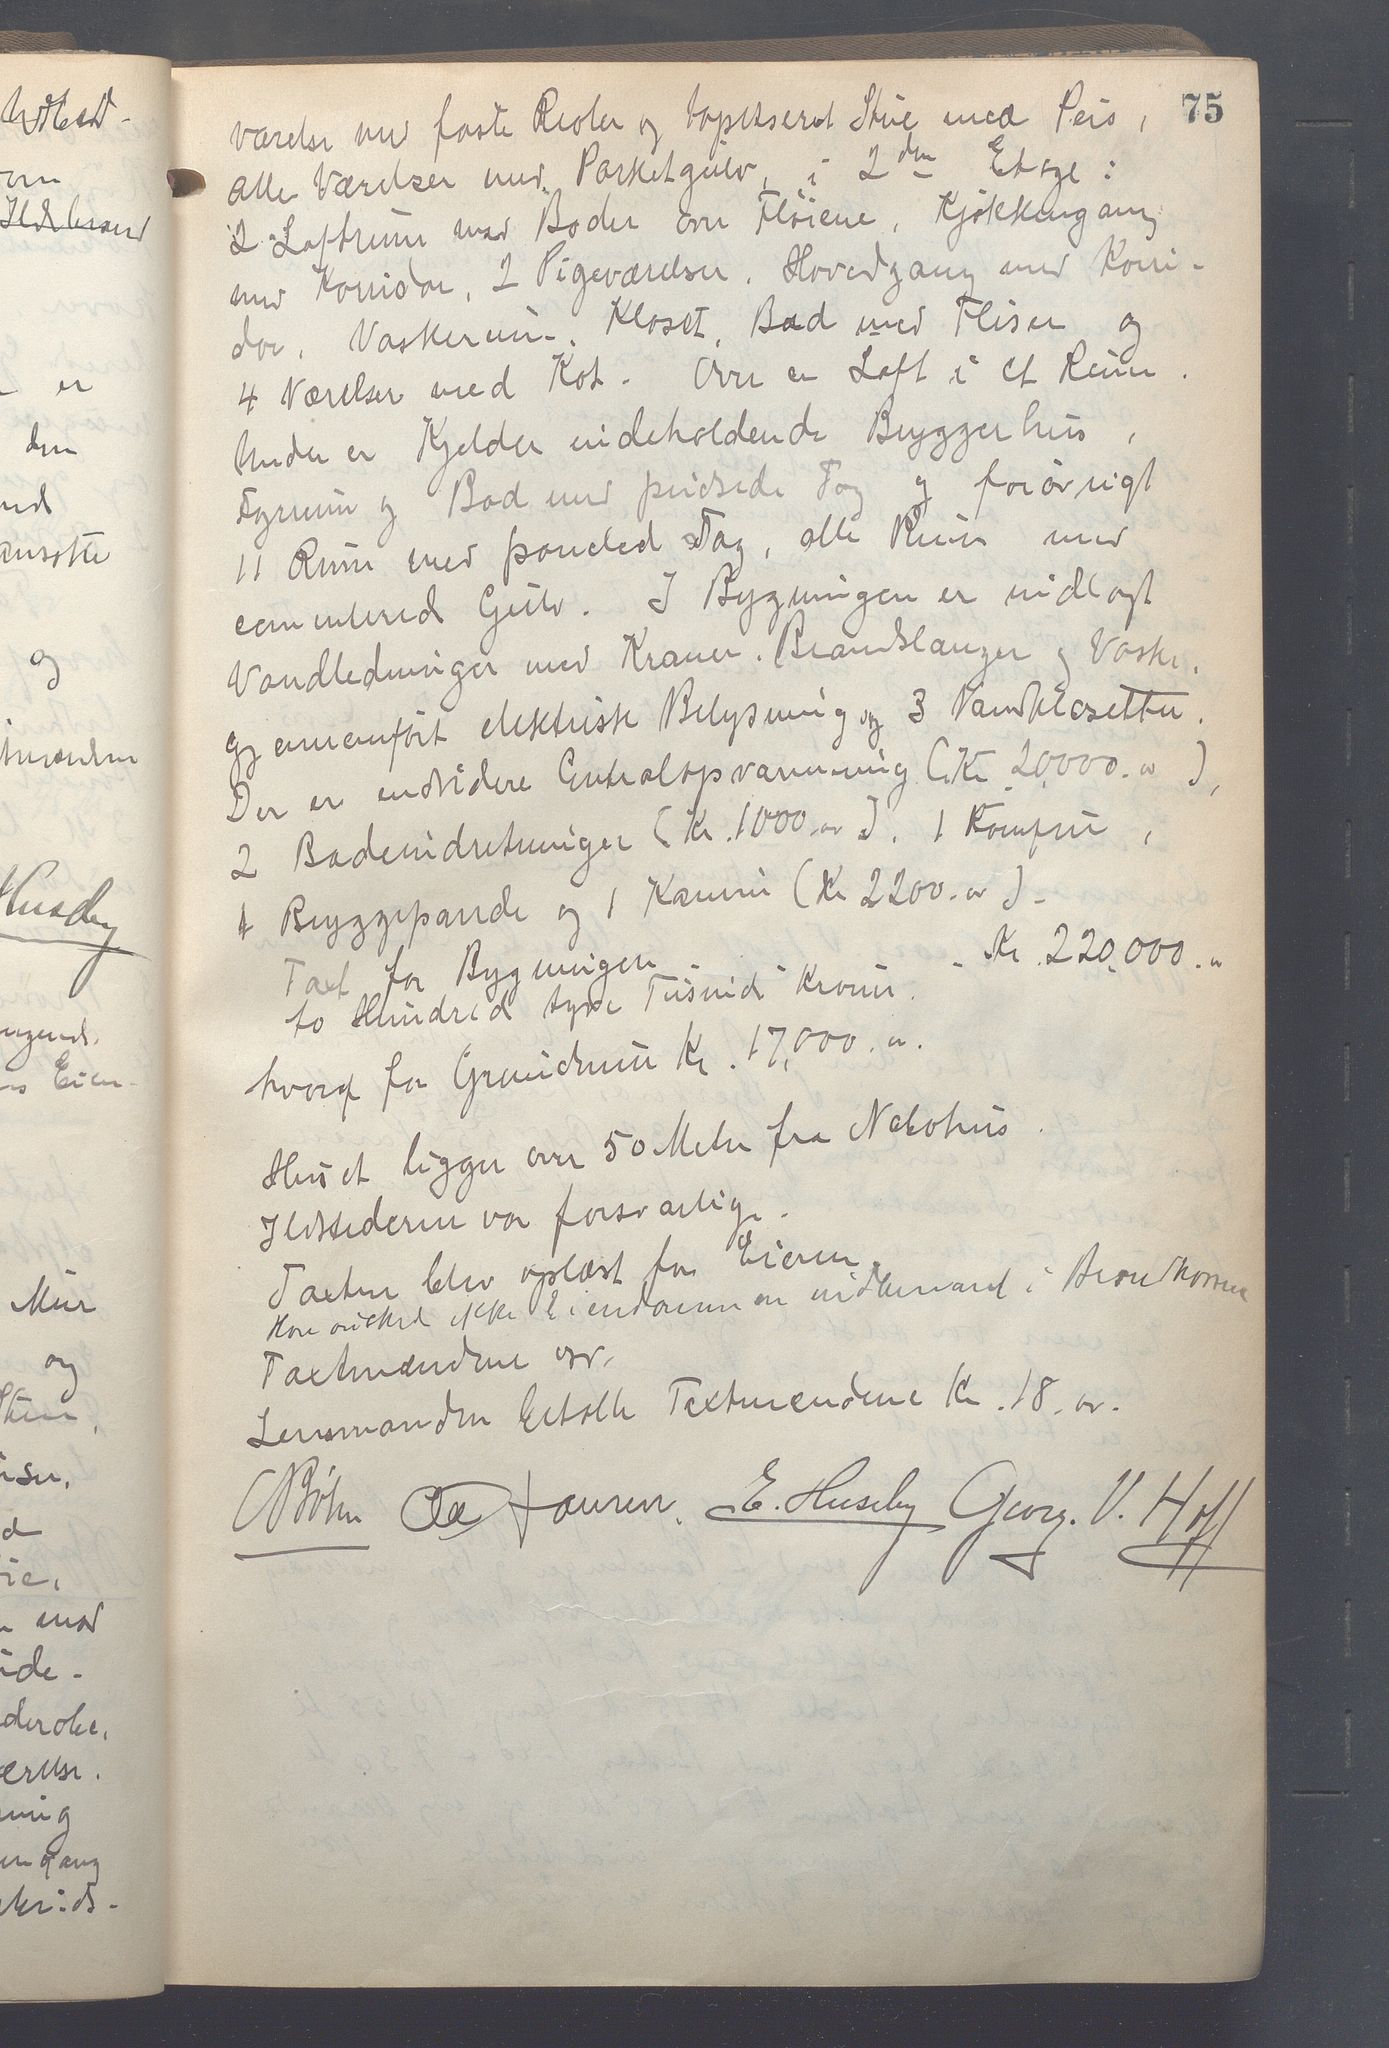 75
værelse med faste Reoler og tapetseret Stue med Peis,
alle Værelser med Parketgulv, i 2den Etage:
2 Loftrum med Boder over Fløiene, Kjøkkengang
med Korridor, 2 Pigeværelser, Hovedgang med Korri-
dor, Vaskerum, Kloset, Bad med Fliser og
4 Værelser med Kot. Over er Loft i et Rum.
Under er Kjelder indeholdende Bryggerhus,
Fyrrum og Bad med pudsede Tag og forøvrigt
11 Rum med paneled Tag, alle Rum med
cementered Gulv. I Bygningen er indlagt
Vandledninger med Kraner, Brandslanger og Vaske,
gjennemført elektrisk Belysning og 3 Vandklosetter.
Der er endvidere Centralopvarmning (Kr. 20,000.-),
2 Badeindretninger (Kr. 1000.-), 1 Komfur,
1 Bryggepande og 1 Kamin (Kr 2200.-).
Taxt for Bygningen - - Kr. 220,000.-
to Hundred tyve Tusind Kroner.
hvoraf for Grundmur Kr. 17,000.-.
Huset ligger over 50 Meter fra Nabohus.
Ildstederne var forsvarlige.
Taxten blev oplæst for Eieren.
Hon ønsked ikke Eiendommen indbemeldt i Brandkassen
Taxtmændene
Lensmanden betalte Taxtmændene Kr. 18.-.
Bøhn Hansen. E. Huseby Georg. V. Hoff
Ildebrand
er
den
ansatte
og
Huseby
Mur
og
ind-